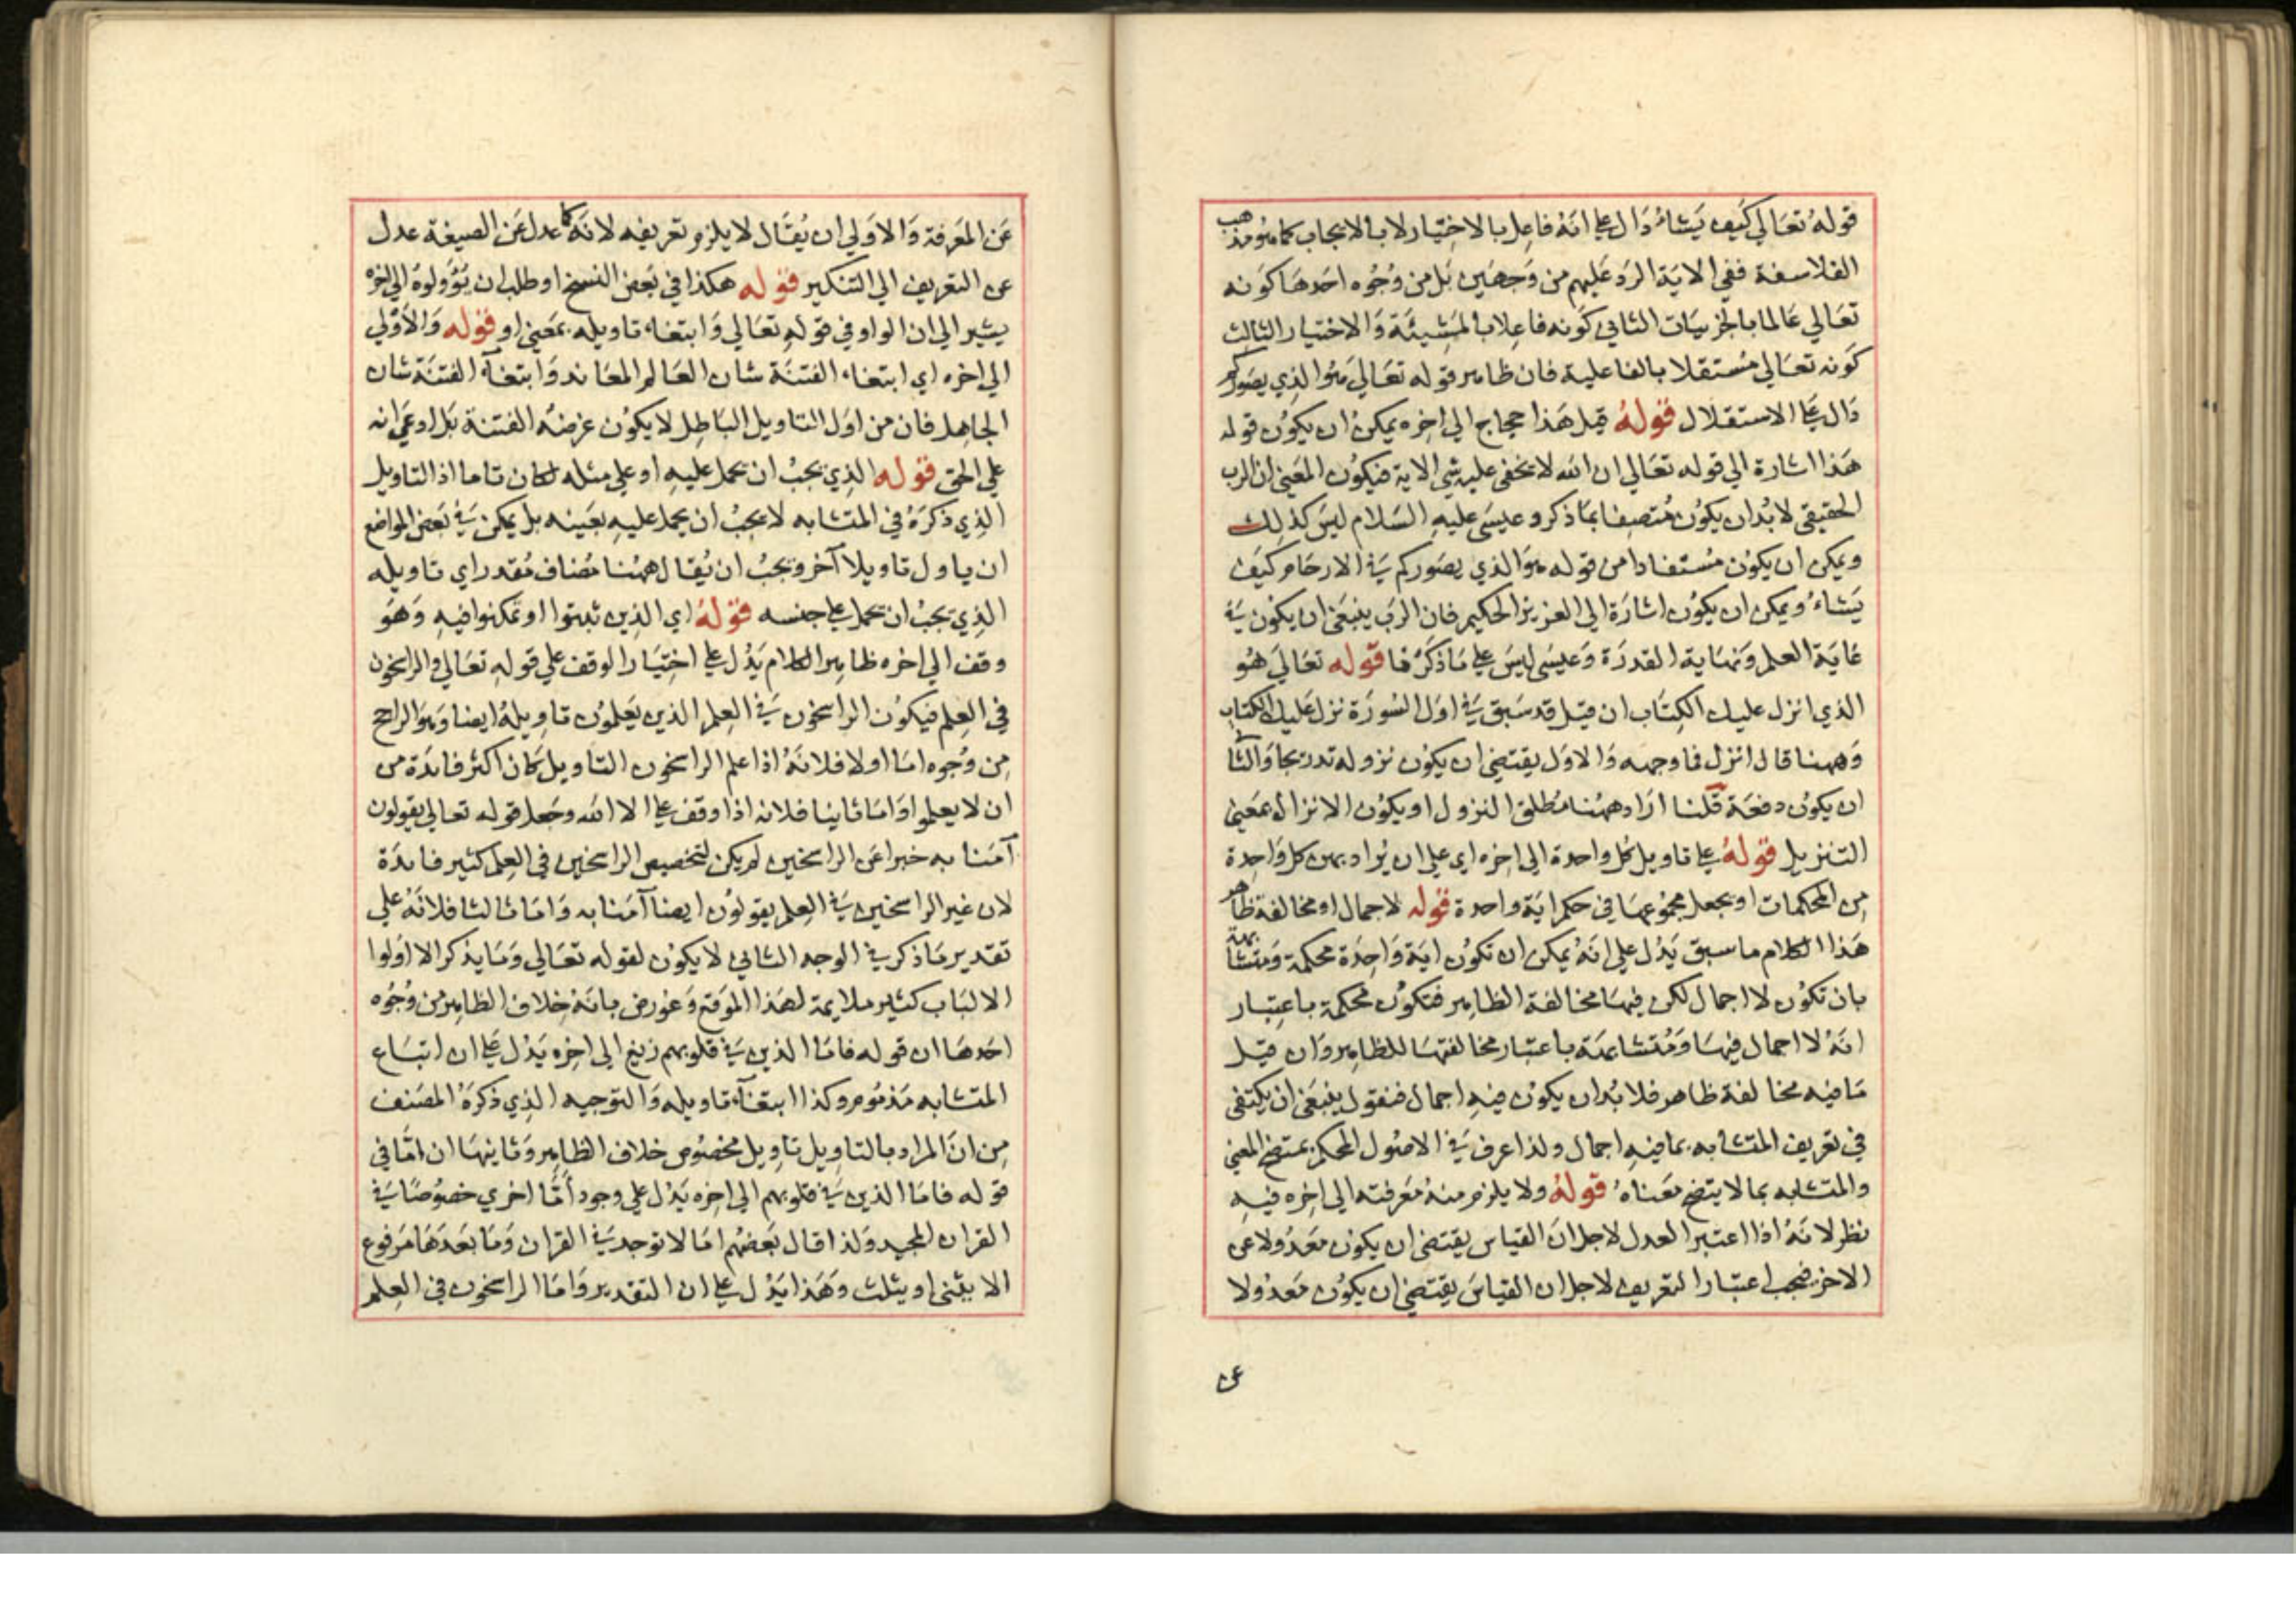 قوله تعالي كيف يشاء دال علي انه فاعل بالاختيار لا بالايجاب كما هو مذهب
الفلاسفة ففي الاية الرد عليهم من وجهين بل من وجوه احدها كونه
تعالي عالما بالجزييات الثاني كونه فاعلا بالمشيئة والاختيار الثالث
كونه تعالي مستقلا بالفاعلية فان ظاهر قوله تعالي هو الذي يصوركم
دال علي الاستقلال قوله قيل هذا حجاج الي اخره يمكن ان يكون قوله
هذا اشارة الي قوله تعالي ان الله لا يخفي عليه شي الاية فيكون المعني ان الرب
الحقيقي لابد ان يكون متصفا بما ذكر وعيسي عليه السلام ليس كذلك
ويمكن ان يكون مستفادا من قوله هو الذي يصوركم في الارحام كيف
يشاء ويمكن ان يكون اشارة الي العزيز الحكيم فان الرب ينبغي ان يكون في
غاية العلم ونهاية القدرة وعيسي ليس علي ما ذكر فا قوله تعالي هو
الذي انزل عليك الكتاب ان قيل قد سبق في اول السورة نزل عليك الكتاب
وههنا قال انزل فما وجهه والاول يقتضي ان يكون نزوله تدريجا والثا
ان يكون دفعة قلنا اراد ههنا مطلق النزول او يكون الانزال بمعني
التنزيل قوله علي تاويل كل واحدة الي اخره اي علي ان يراد بهن كل واحدة
من المحكمات او يجعل مجموعها في حكم اية واحدة قوله لاجمال او مخالفة ظاهر
هذا الكلام ما سبق يدل علي انه يمكن ان تكون اية واحدة محكمة ومتشابهة
بان تكون لا اجمال لكن فيها مخالفة الظاهر فتكون محكمة باعتبار
انه لا اجمال فيها ومتشابهة باعتبار مخالفتها للظاهر وان قيل
ما فيه مخالفة ظاهر فلابد ان يكون فيه اجمال فنقول ينبغي ان يكتفي
في تعريف المتشابه بما فيه اجمال ولذا عرف في الاصول المحكم بمتضح المعني
والمتشابه بما لا يتضح معناه قوله ولا يلزم منه معرفته الي اخره فيه
نظر لانه اذا اعتبر العدل لاجل ان القياس يقتضي ان يكون معدولا عن
الاخر فيجب اعتبار التعريف لاجل ان القياس يقتضي ان يكون معدولا
عن
عن المعرفة والاولي ان يقال لا يلزم تعريفه لانه كما عدل عن الصيغة عدل
عن التعريف الي التنكير قوله هكذا في بعض النسخ او طلب ان يؤولوه الي اخره
يشير الي ان الواو في قوله تعالي وابتغاء تاويله بمعني او قوله والاولي
الي اخره اي ابتغاء الفتنة شان العالم المعاند وابتغآ الفتنة شان
الجاهل فان من اول التاويل الباطل لا يكون غرضه الفتنة بل ادعي انه
علي الحق قوله الذي يجب ان يحمل عليه او علي مثله لكان تاما اذ التاويل
الذي ذكره في المتشابه لا يجب ان يحمل عليه بعينه بل يمكن في بعض المواضع
ان ياول تاويلا آخر ويجب ان يقال ههنا مضاف مقدر اي تاويله
الذي يجب ان يحمل علي جنسه قوله اي الذين ثبتوا او تمكنوا فيه وهو
وقف الي اخره ظاهر الكلام يدل علي اختيار الوقف علي قوله تعالي والراسخون
في العلم فيكون الراسخون في العلم الذين يعلمون تاويله ايضا وهو الراجح
من وجوه اما اولا فلانه اذا علم الراسخون التاويل كان اكثر فايدة من
ان لا يعلموا واما ثانيا فلانه اذا وقف علي الا الله وجعل قوله تعالي يقولون
آمنا به خبرا عن الراسخين لم يكن لتخصيص الراسخين في العلم كثير فايدة
لان غير الراسخين في العلم يقولون ايضا آمنا به واما ثالثا فلانه علي
تقدير ما ذكر في الوجه الثاني لا يكون لقوله تعالي وما يذكر الا اولوا
الالباب كثير ملايمة لهذا الموقع وعورض بانه خلاف الظاهر من وجوه
احدها ان قوله فاما الذين في قلوبهم زيغ الي اخره يدل علي ان اتباع
المتشابه مذموم وكذا ابتغآء تاويله والتوجيه الذي ذكره المصنف
من ان المراد بالتاويل تاويل مخصوص خلاف الظاهر وثانيها ان اما في
قوله فاما الذين في قلوبهم الي اخره يدل علي وجود أما اخري خصوصا في
القران المجيد ولذا قال بعضهم اما لا توجد في القران وما بعدها مرفوع
الا يثني او يثلث وهذا يدل علي ان التقدير واما الراسخون في العلم